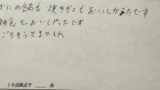 かにの鍋も 焼きがにも おいしかったです
朝食も おいしかったです
ごちそうさまでした